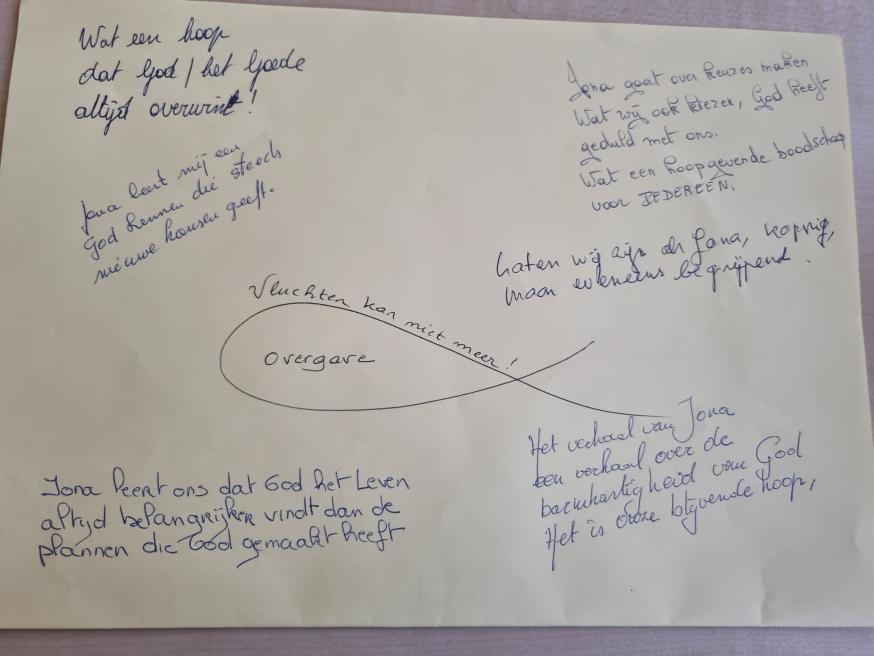 Wat een hoop
dat God / het Goede
altijd overwint!
Jona leert mij een
God kennen die steeds
nieuwe kansen geeft.
Jona gaat over keuzes maken
Wat wij ook kiezen, God heeft
geduld met ons.
Wat een hoopgevende boodschap
voor IEDEREEN.
Laten wij zijn als Jona, koppig,
maar eveneens begrijpend.
Vluchten kan niet meer!
Overgave
Jona leert ons dat God het Leven
altijd belangrijker vindt dan de
plannen die God gemaakt heeft
Het verhaal van Jona
een verhaal over de
barmhartigheid van God
Het is onze blijvende hoop,